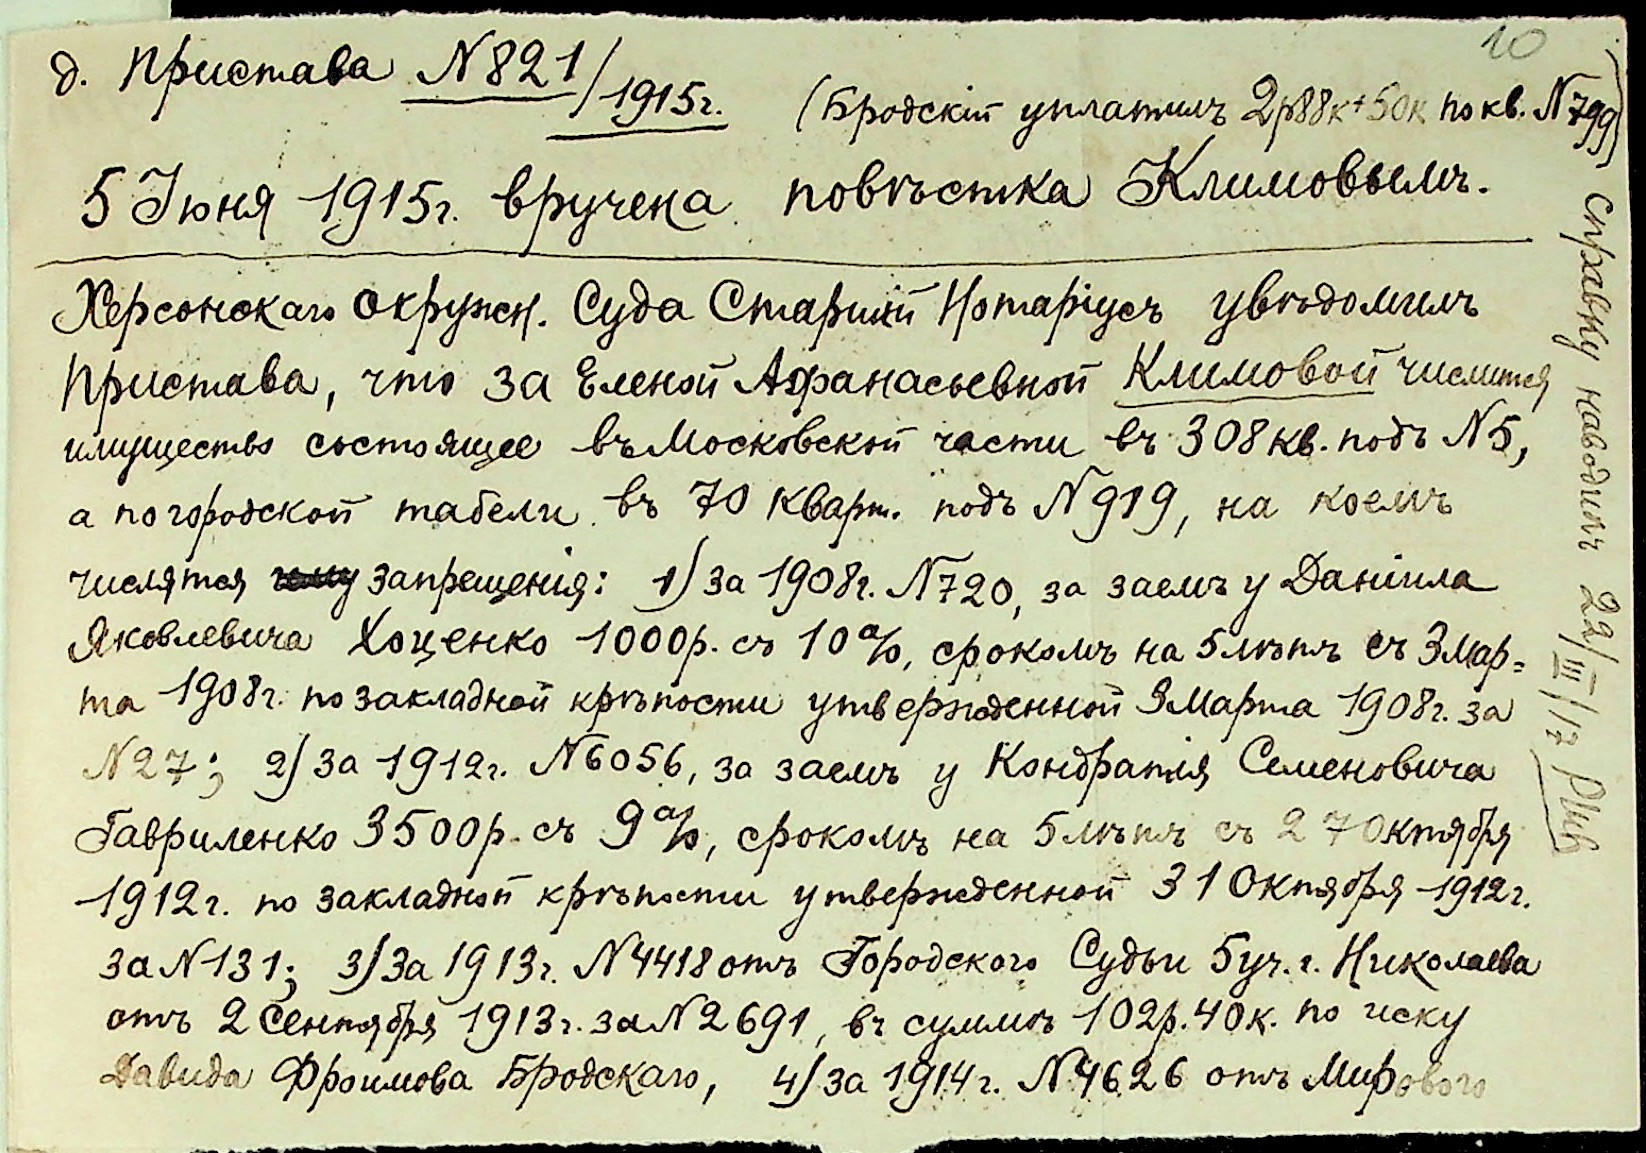 10
д. Пристава N821/1915г. (Бродскій уплатилъ 2р88к+50к по кв. N799)
5 Іюня 1915г. вручена повѣстка Климовымъ.
Херсонскаго Окружн. Суда Старшій Нотаріусъ увѣдомилъ
Пристава, что за Еленой Афанасьевной Климовой числится
имущество состоящее въ Московской части въ 308 кв. подъ N5,
а по городской табели въ 70 кварт. подъ N919, на коемъ
числятся запрещенія: 1) за 1908г. N720, за заемъ у Даніила
Яковлевича Хоценко 1000р. съ 10%, срокомъ на 5 лѣтъ съ 3 Мар=
та 1908г. по закладной крѣпости утвержденной 3 Марта 1908г. за
N27; 2) за 1912г. N6056, за заемъ у Кондратія Семеновича
Гавриленко 3500р. съ 9%, срокомъ на 5 лѣтъ съ 27 Октября
1912г. по закладной крѣпости утвержденной 31 Октября 1912г.
за N131; 3) За 1913г. N4418 отъ Городского Судьи 5 уч. г. Николаева
отъ 2 Сентября 1913г. за N2691, въ суммѣ 102р. 40к. по иску
Давида Фроимова Бродскаго, 4) за 1914г. N4626 отъ Мирового
справку наводилъ 22/III/17